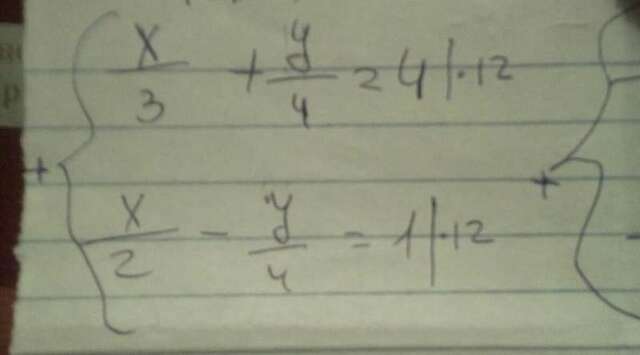 x/3 + y/4 = 4 |·12
+
x/2 - y/4 = 1 |·12
+